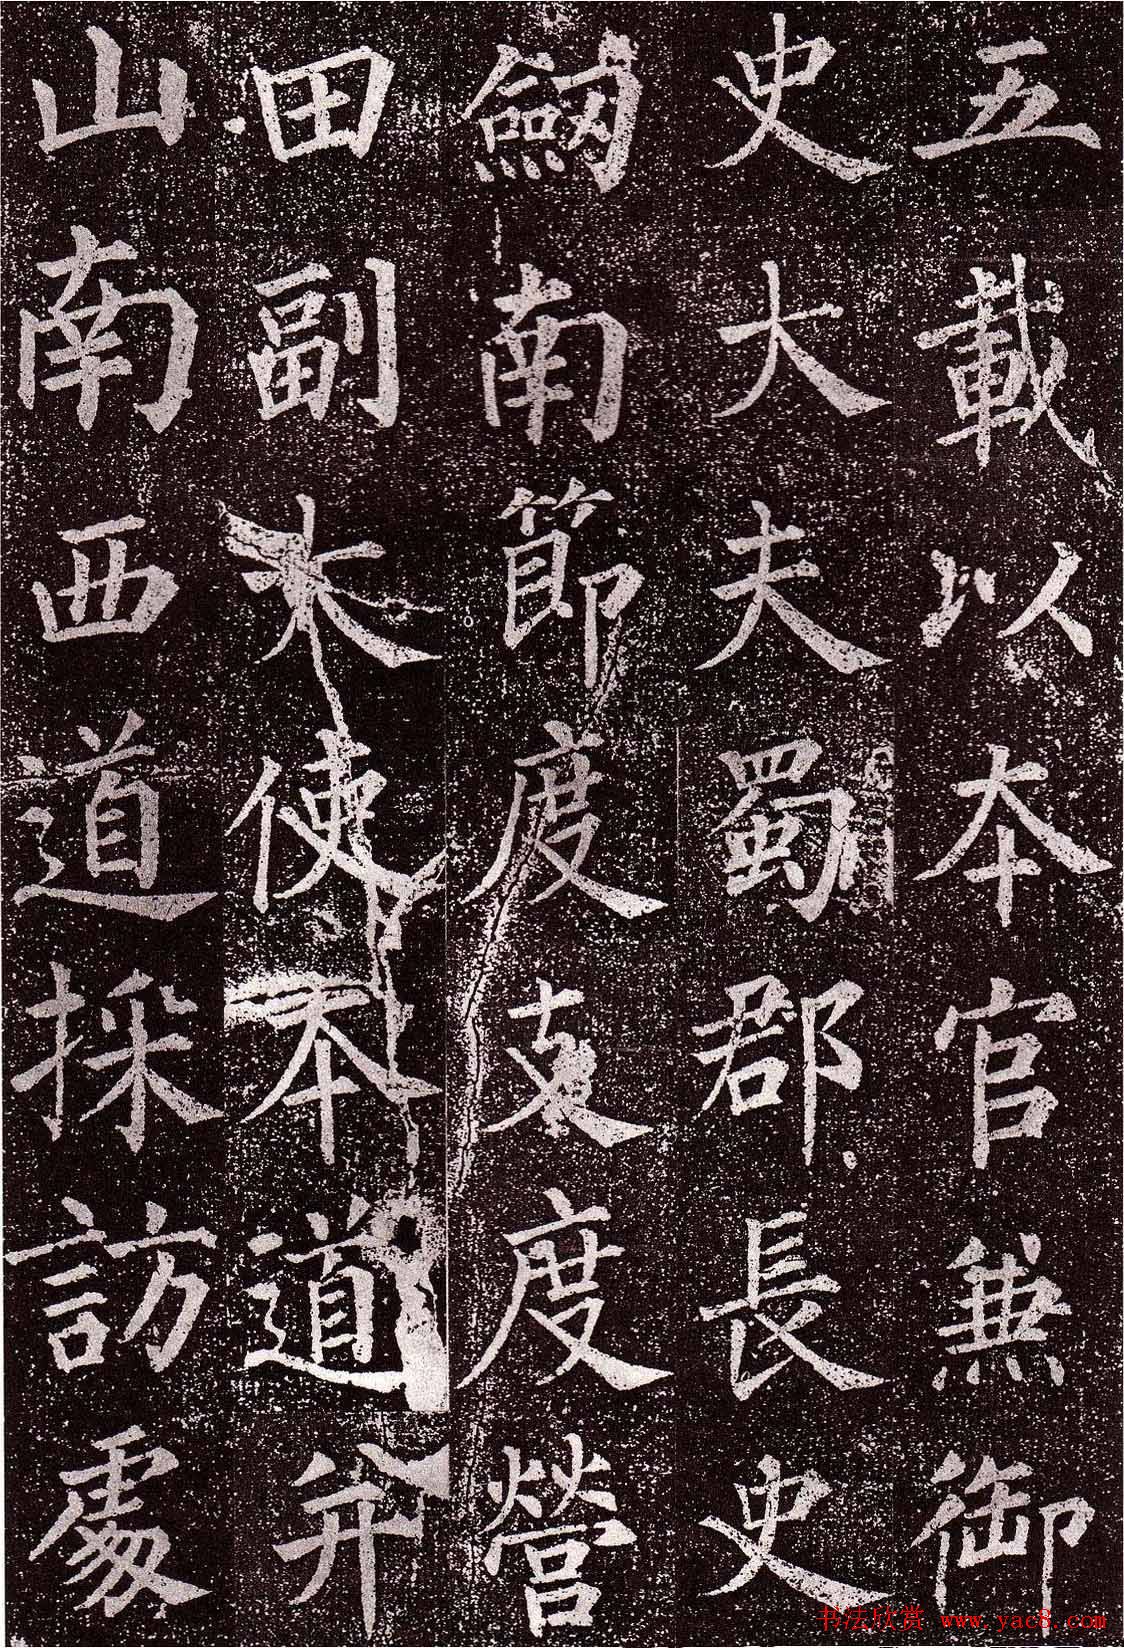 五載以本官兼御
史大夫蜀郡長史
劒南節度支度營
田副大使本道并
山南西道採訪處
书法欣赏 www.yac8.com